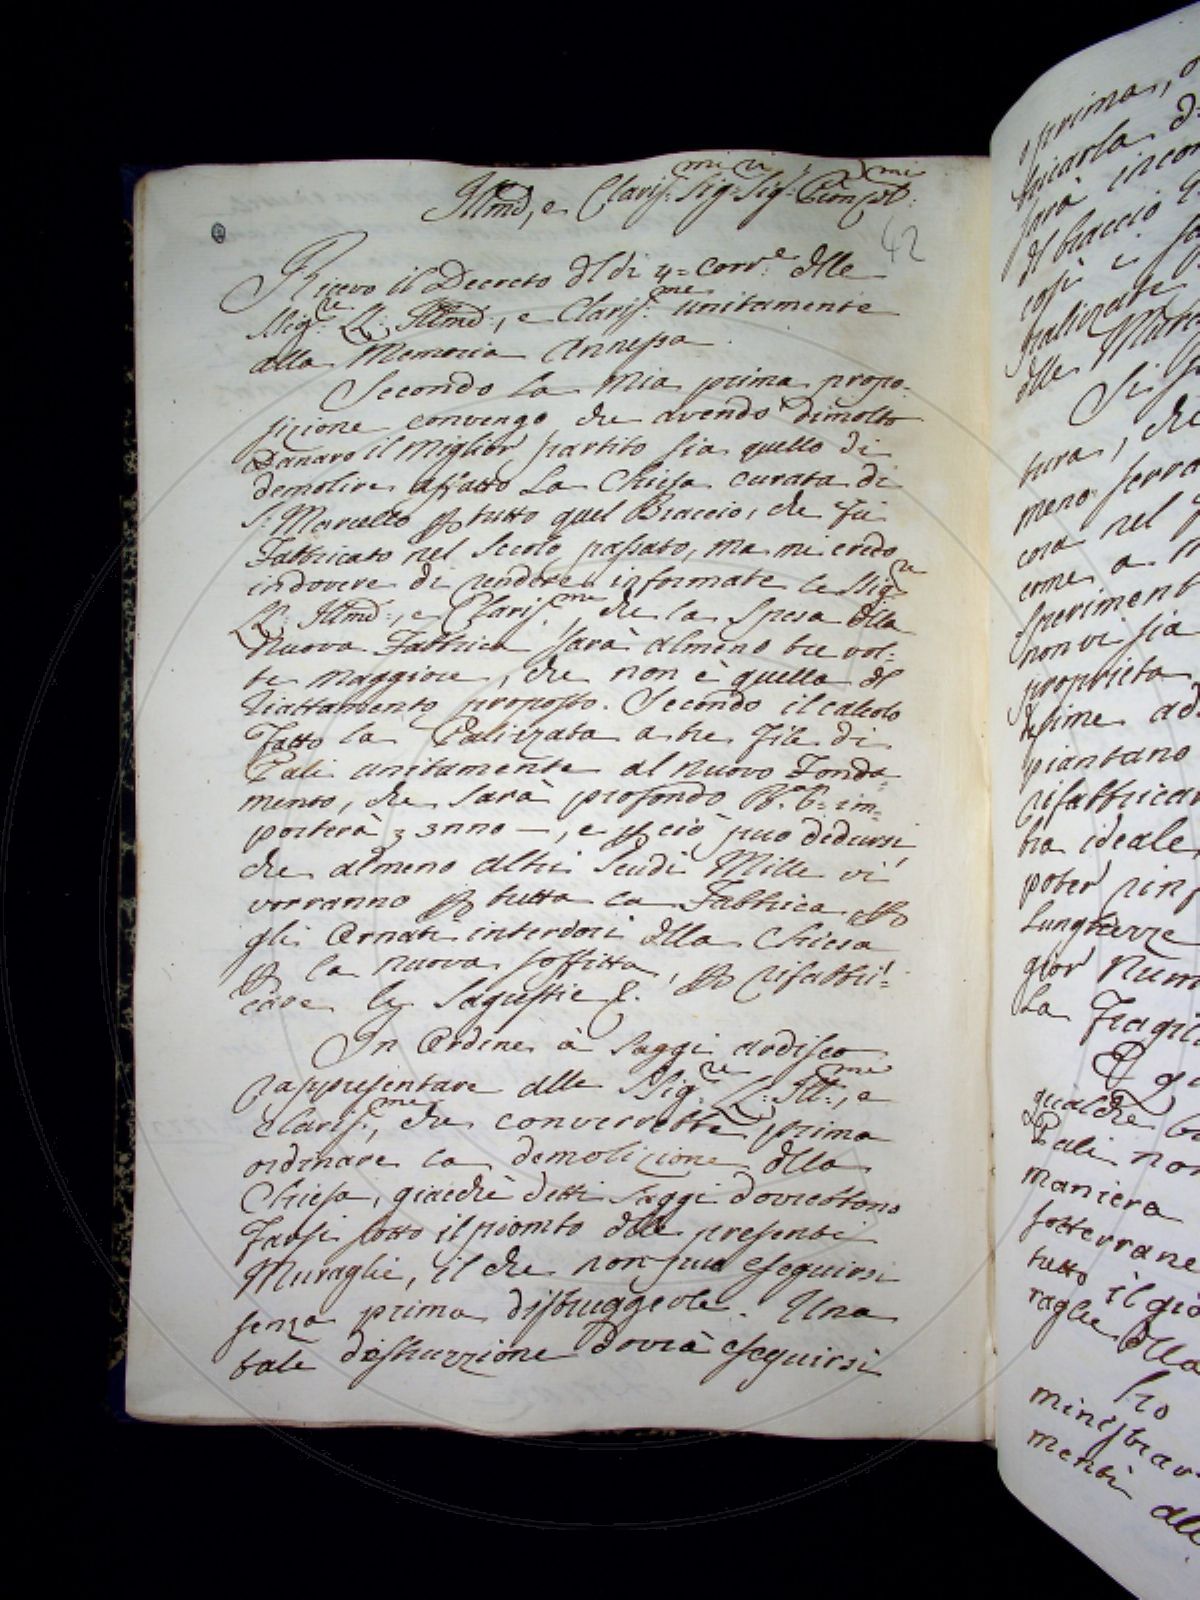 Illmi, e Clariss:mi Sig:ri Sig:ri Pron Col:mi
42
Ricevo il Decreto dl di 4= Corr.e dlle
Sig.rie LL: Illme:, e Clariss.me unitamente
alla Memoria Annessa.
Secondo la mia prima propo-
sizione convengo che avendo dimolto
Danaro il miglior partito sia quello di
demolire affatto la Chiesa curata di
S: Marcello p tutto quel Braccio, che fu
Fabbricato nel secolo passato, ma mi credo
indovere di rendere informate le Sig.rie
LL: Illme:, e Clariss.me che la spesa dlla
nuova Fabbrica sarà almeno tre vol:
te maggiore, che non è quella dl
riattamento proposto. Secondo il calcolo
fatto la Palizzata a tre file di
Pali unitamente al nuovo Fonda-
mento, che sarà profondo im-
porterà, e p ciò puo dedursi,
che almeno altri Scudi Mille vi
vorranno p tutta la Fabbrica p
gli Ornati interiori dlla Chiesa
p la nuova soffitta, p rifabbri:
care le Sagrestie &.
In Ordine à saggi ardisco
rappresentare alle Sig.rie LL: Ill:me, e
Clariss.me, che converrebbe prima
ordinare la demolizione dlla
Chiesa, giacchè detti saggi dovrebbono
farsi sotto il piombo dlle presenti
Muraglie, il che non puo eseguirsi
senza prima distruggerle. Una
tale distruzzione dovrà eseguirsi
prima,
sarà
dl braccio
così
palizzate
dlle
tura, che
meno
cora nel
come a
sperimen
non vi sia
proprietà
piantano
rifabbricar
tra ideale
poter rin
lunghezze
gior Num
la fragi
qualche
Pali non
maniera
sotterrane
tutto il
raglie dlla
ministrar
menti